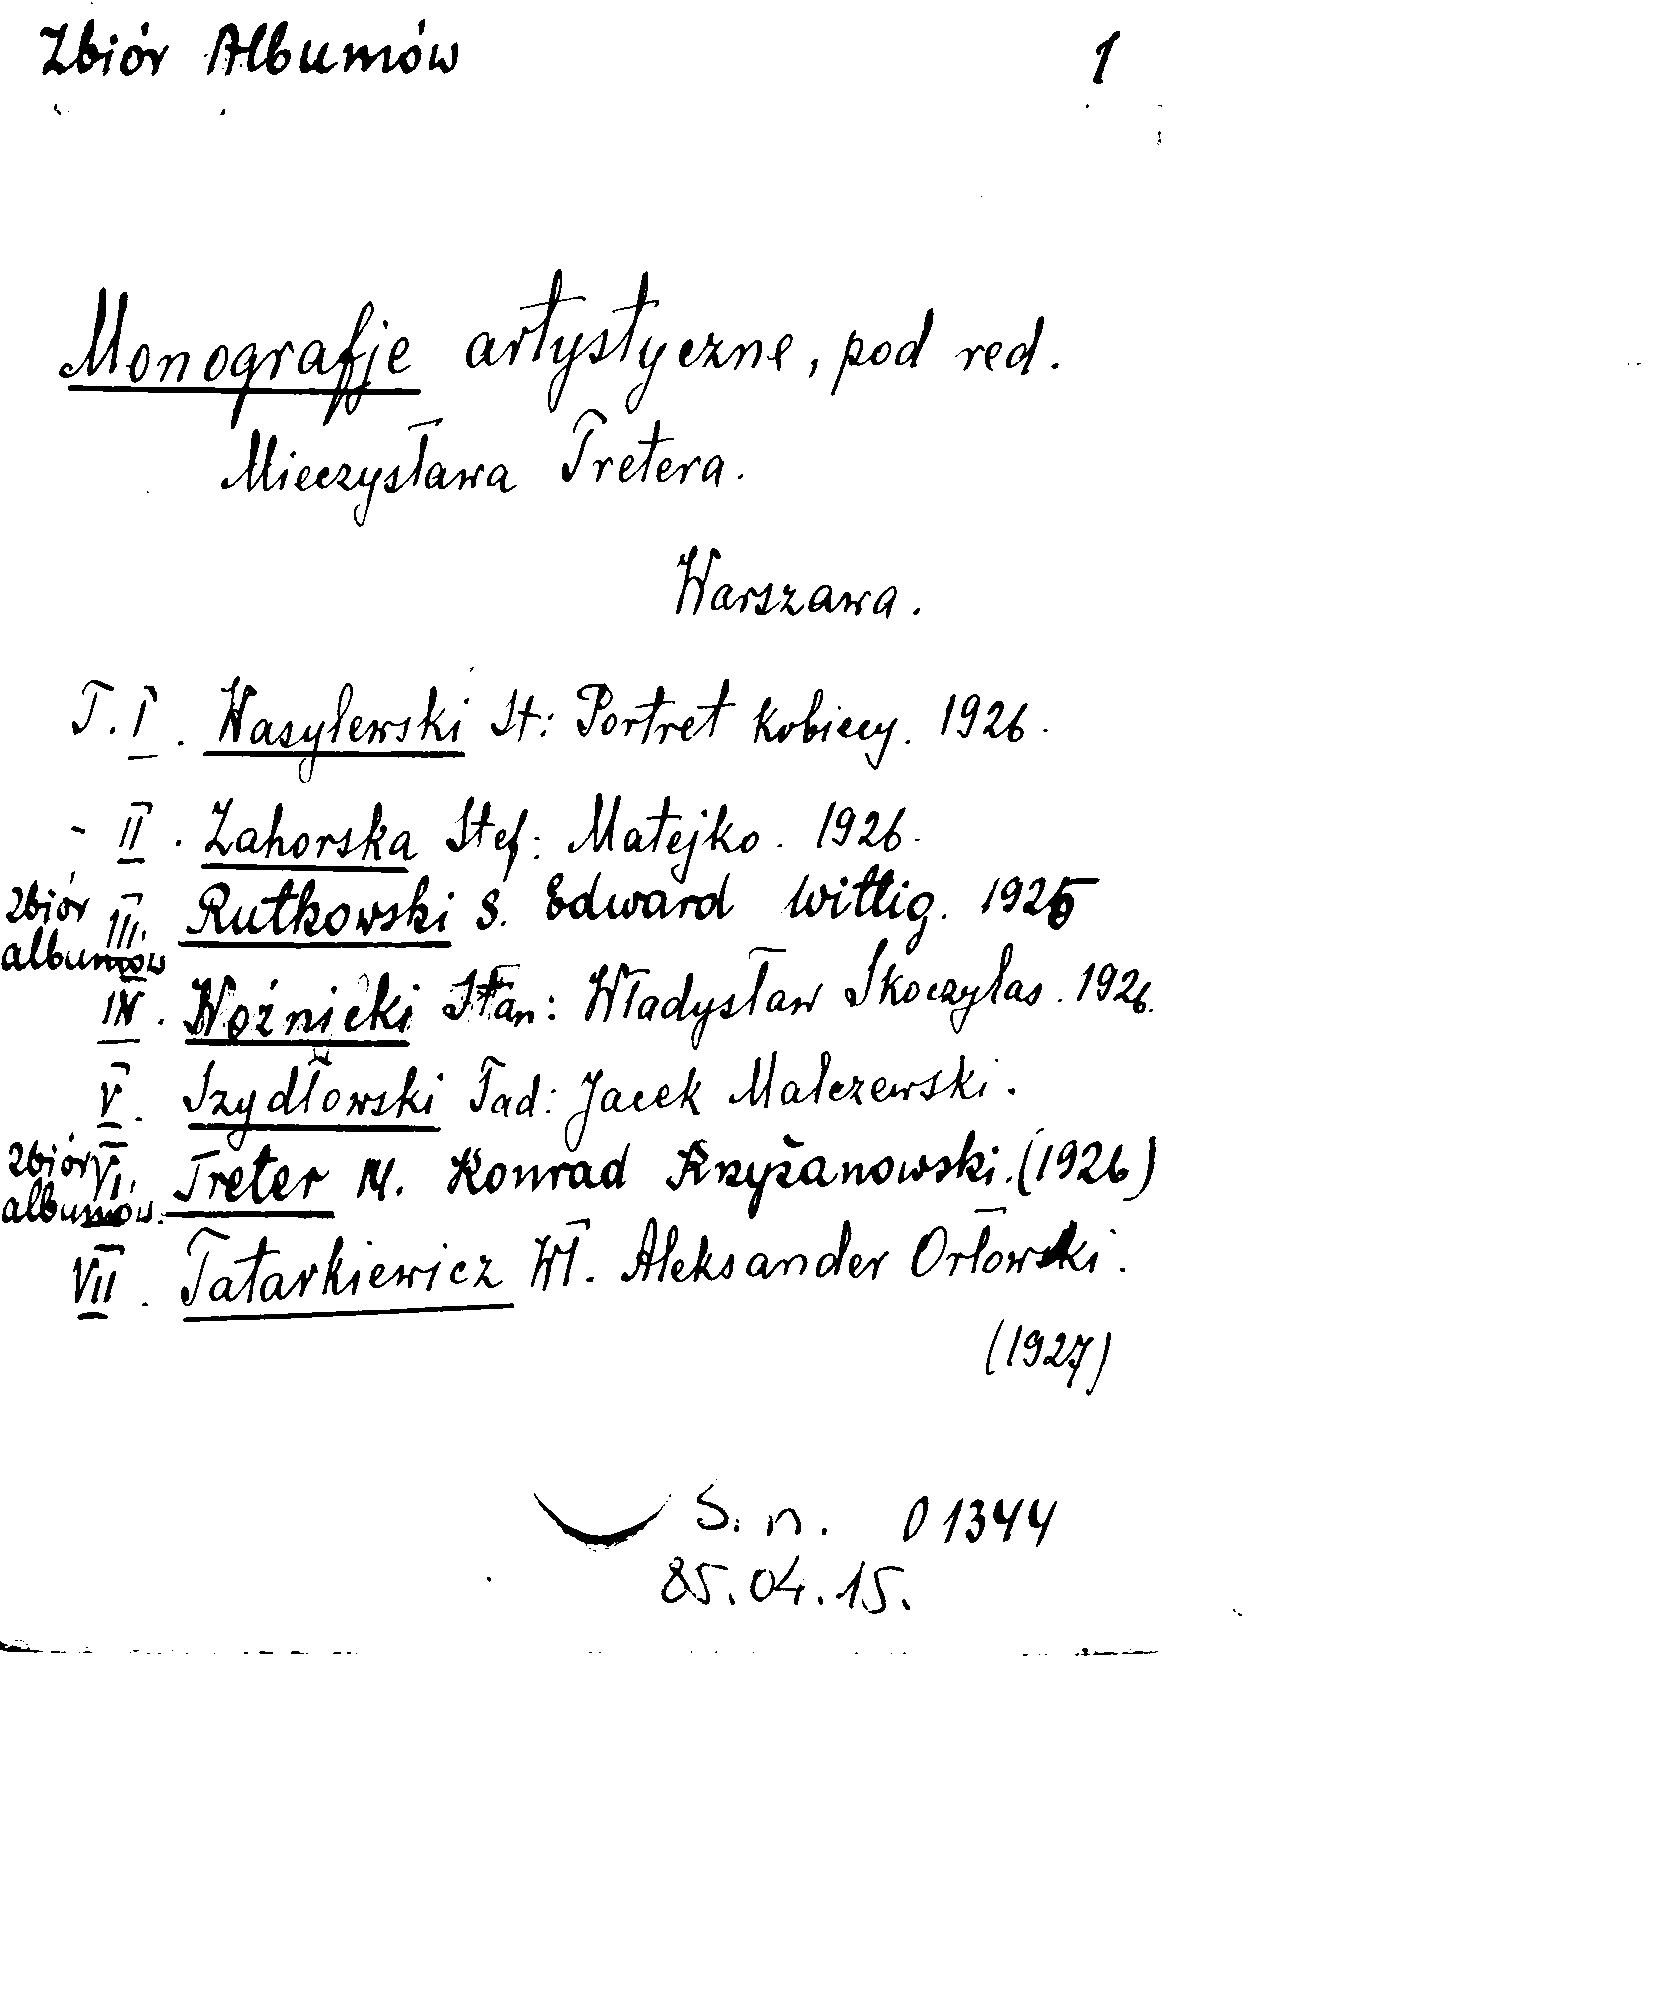 Zbiór Albumów 1
Monografje artystyczne, pod red.
Mieczysława Tretera.
Warszawa.
T. I. Wasylewski St: Portret kobiecy. 1926.
- II. Zahorska Stef: Matejko. 1926.
Zbiór albumów III. Rutkowski S. Edward Wittig. 1925
IV. Woźnicki Stan: Władysław Skoczylas. 1926.
V. Szydłowski Tad: Jacek Malczewski.
Zbiór albumów. VI. Treter M. Konrad Krzyżanowski. (1926)
VII. Tatarkiewicz Wł. Aleksander Orłowski.
(1927)
S. n. 01344
85.04.15.